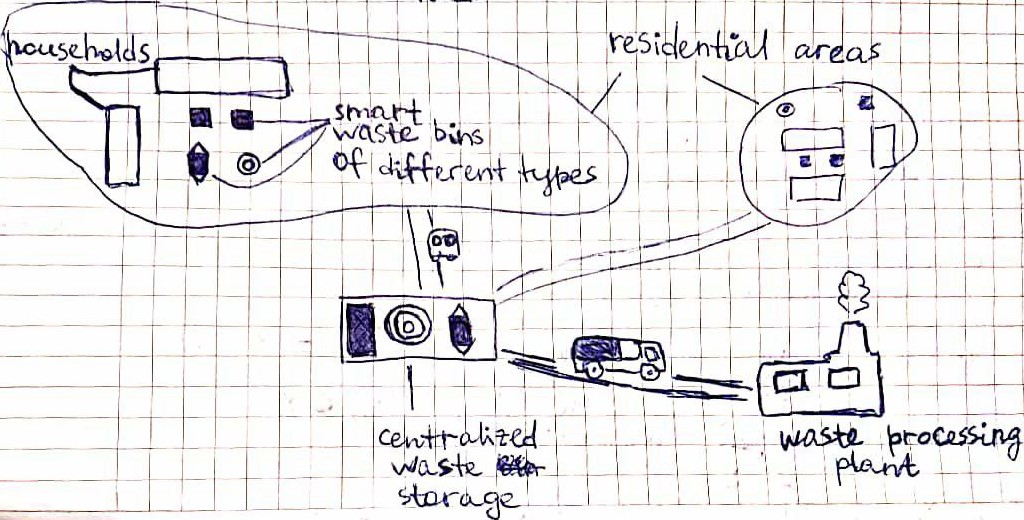 households
residential areas
smart
waste bins
of different types
centralized
waste
storage
waste processing
plant